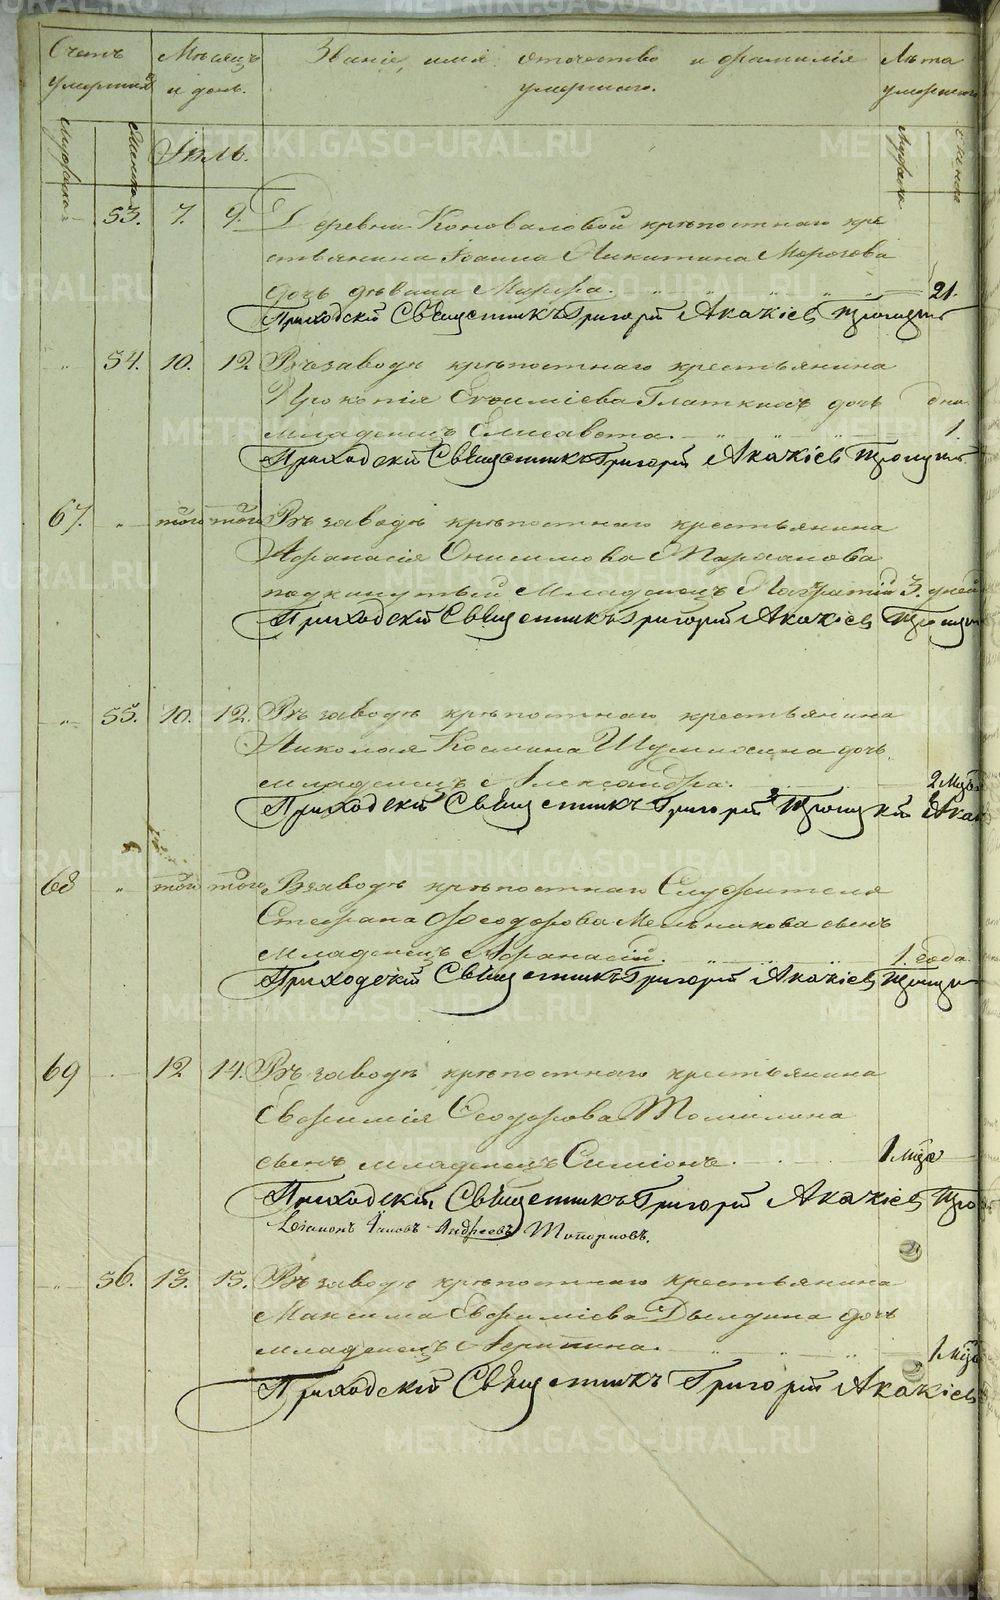 Счетъ умершихъ
Мѣсяцъ и день.
Званіе, имя отечество и фамилія умершаго.
Лѣта умершаго
Мужеска
Женска
Іюль.
Мужеска
Женска
53. 7. 9. Деревни Коноваловой крѣпостнаго кре
стьянина Іоанна Никитина Морозова
дочь дѣвица Марѳа. 21.
Приходскій Священникъ Григорій Акакіев Троицкій
" 54. 10. 12. Въ заводѣ крѣпостнаго крестьянина
Прокопія Евѳиміева Глаткихъ дочь дня
младенецъ Елисавета. 1.
Приходскій Священникъ Григорій Акакіев Троицкій
67. " того того Въ заводѣ крѣпостнаго крестьянина
Аѳанасія Онисимова
подкинутый Младенецъ 3. дней
Приходскій Священникъ Григорій Акакіев Троицкій
" 55. 10. 12. Въ заводѣ крѣпостнаго крестьянина
Николая Космина дочь
младенецъ Александра. 2 мцѣ
Приходскій Священникъ Григорій Троицкій Ака
68 " того того Въ заводѣ крѣпостнаго Служителя
Стефана Ѳеодорова Мельникова сынъ
младенецъ Аѳанасій. 1. года
Приходскій Священникъ Григорій Акакіев Троицк
69 12 14. Въ заводѣ крѣпостнаго крестьянина
Евфимія Ѳеодорова Томилина
сынъ младенецъ Симіонъ. 1 мцѣ
Приходскій Священникъ Григорій Акакіев Тро
Андреевъ Топорковъ.
" 56. 13. 15. Въ заводѣ крѣпостнаго крестьянина
Максима Евфиміева Дылдина дочь
младенецъ 1 мцѣ
Приходскій Священникъ Григорій Акакіев
METRIKI.GASO-URAL.RU